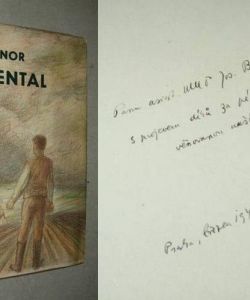 NOR
ENTAL
Panu asist. MUDr Jos. B
s projevem díků za pé
věnovanou
Praha,
194